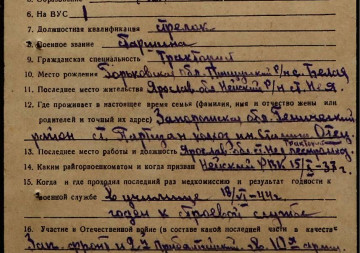 6. На ВУС 1
7. Должностная квалификация стрелок
8. Военное звание Старшина
9. Гражданская специальность Тракторист
10. Место рождения обл. р/н с. Белая
11. Последнее место жительства Ярослав. обл. Нейский р/н ст. Нея
12. Где проживает в настоящее время семья (фамилия, имя и отчество жены или
родителей и точный их адрес) Запорожская обл. Генический
район с. Партизан колхоз им. Отец
13. Последнее место работы и должность Ярослав обл. тракторист
14. Каким райгорвоенкоматом и когда призван Нейский РВК 15/ -37г.
15. Когда и где проходил последний раз медкомиссию и результат годности к
военной службе В училище 18/VI-44г
годен к строевой службе
16. Участие в Отечественной войне (в составе какой последней части в качестве
Зап. фронт и 2й Прибалтийский в 10й армии